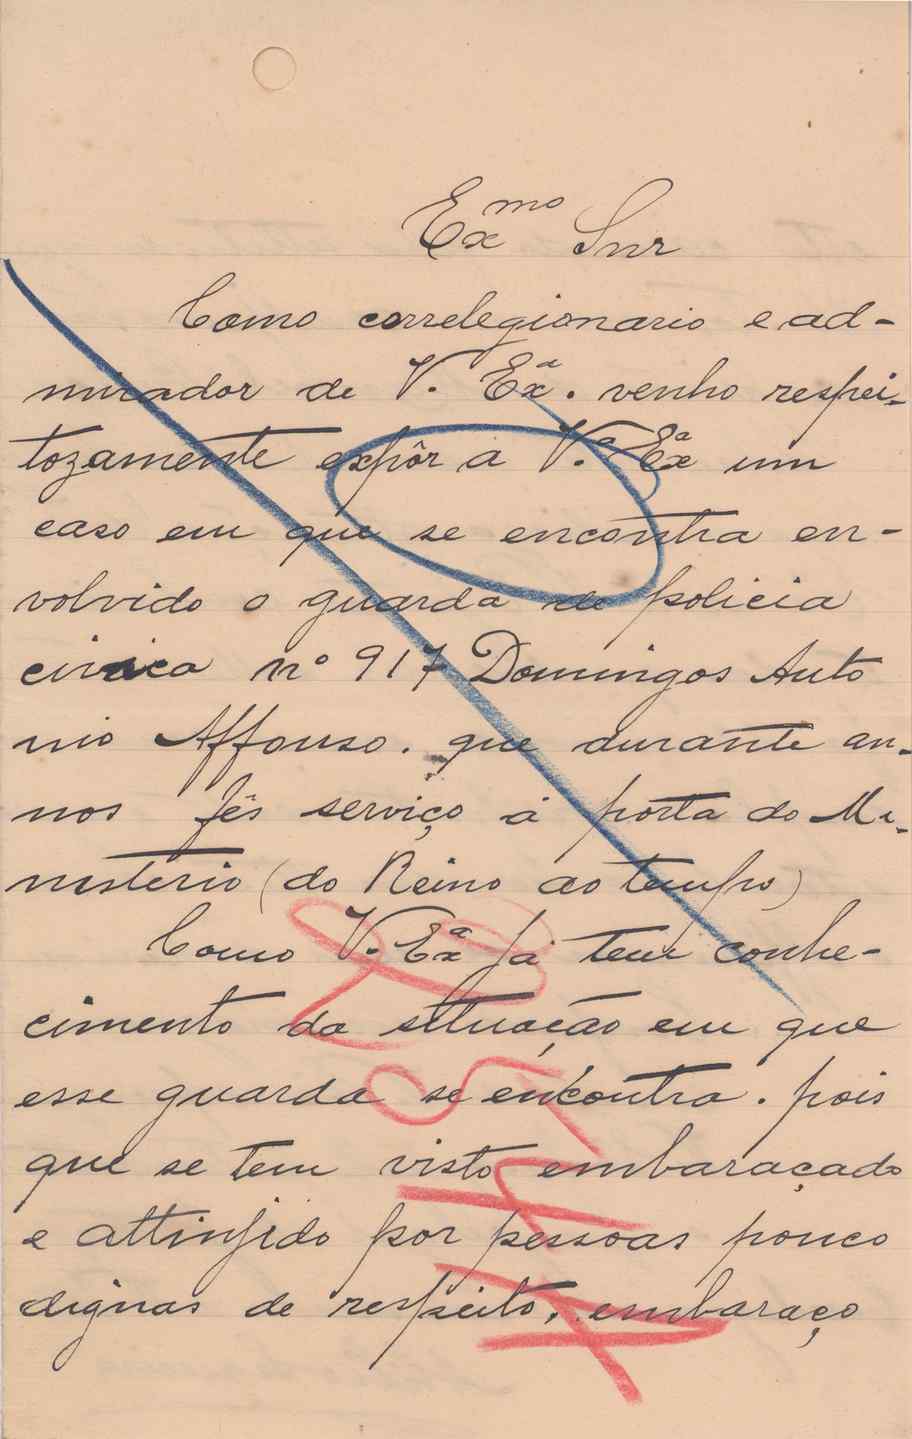 Exmo Snr
Como correlegionario e ad-
mirador de V. Exª. venho respei-
tozamente expôr a V.ª Exª um
caso em que se encontra en-
volvido o guarda de policia
civica nº 917 Domingos Anto
nio Affonso. que durante an-
nos fês serviço á porta do Mi-
nisterio (do Reino ao tempo)
Como V. Exª já tem conhe-
cimento da situação em que
esse guarda se encontra. pois
que se tem visto embaraçado
e attinjido por pessoas pouco
dignas de respeito, embaraço